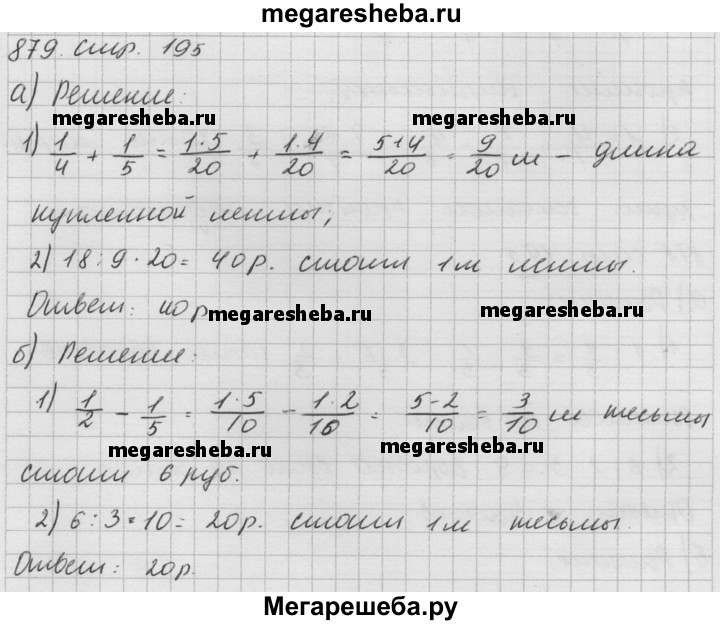 megaresheba.ru
879. стр. 195
а) Решение:
megaresheba.ru megaresheba.ru
1) 1/4 + 1/5 = 1·5/20 + 1·4/20 = 5+4/20 = 9/20 м – длина
купленной ленты,
2) 18 : 9 · 20 = 40р. стоит 1м ленты.
Ответ: 40р
megaresheba.ru megaresheba.ru
б) Решение:
1) 1/2 – 1/5 = 1·5/10 – 1·2/10 = 5-2/10 = 3/10 м тесьмы
megaresheba.ru megaresheba.ru
стоит 6 руб.
2) 6 : 3 · 10 = 20р. стоит 1м тесьмы.
Ответ: 20р.
Мегарешеба.ру